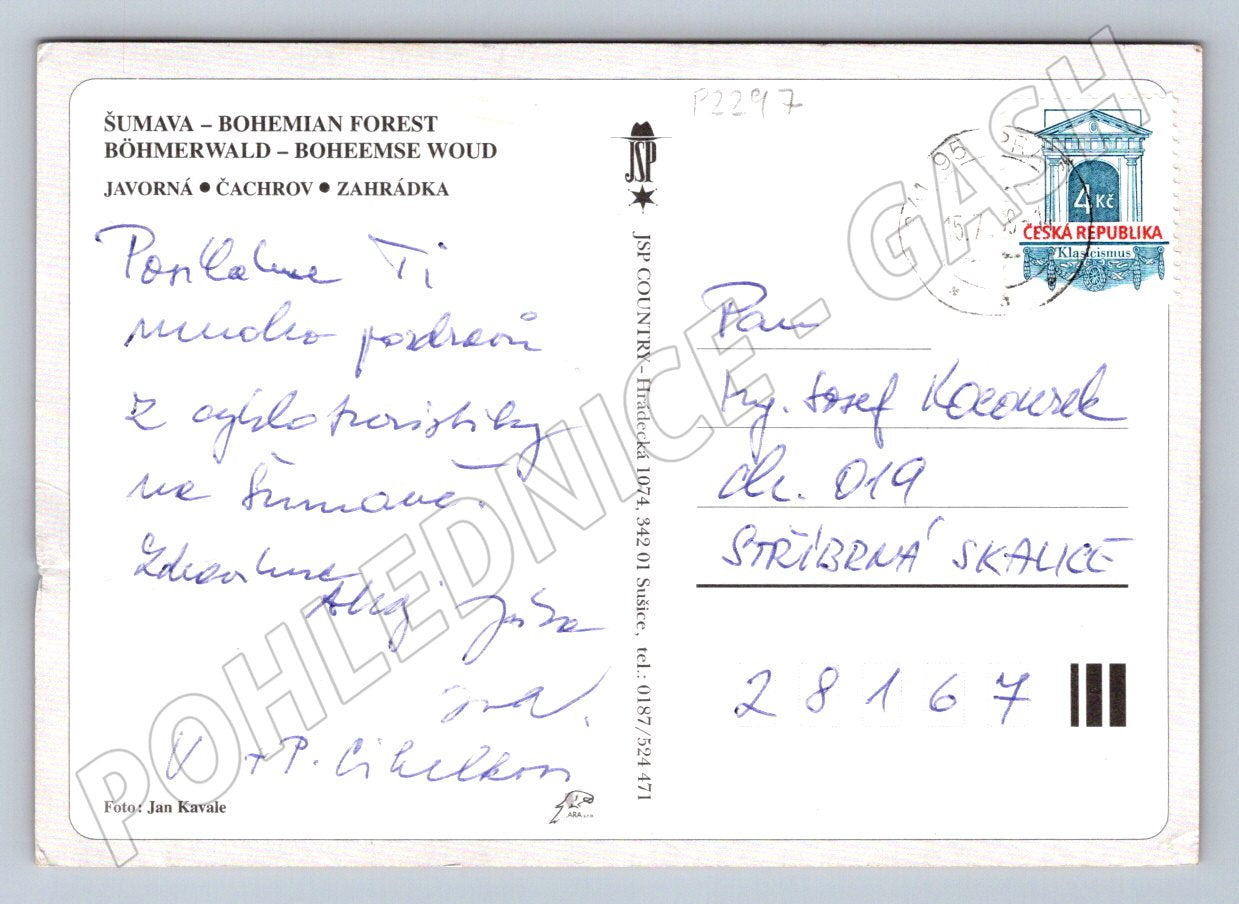 P2297
ŠUMAVA – BOHEMIAN FOREST
BÖHMERWALD – BOHEEMSE WOUD
JAVORNÁ • ČACHROV • ZAHRÁDKA
Posíláme Ti
mnoho pozdravů
z cykloturistiky
na Šumavě.
Zdravíme
V + P. Cihelkovi
Foto: Jan Kavale
ARA s.r.o.
JSP
JSP COUNTRY - Hrádecká 1074, 342 01 Sušice, tel.: 0187/524 471
4 Kč
ČESKÁ REPUBLIKA
Klasicismus
Pan
Ing. Josef Kocourek
čk. 019
STŘÍBRNÁ SKALICE
28167
POHLEDNICE - GASH